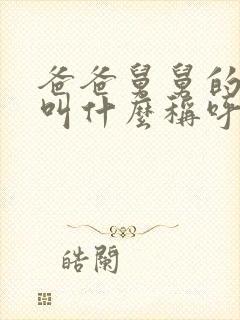 爸爸舅舅的
叫什麼稱呼
皓闌